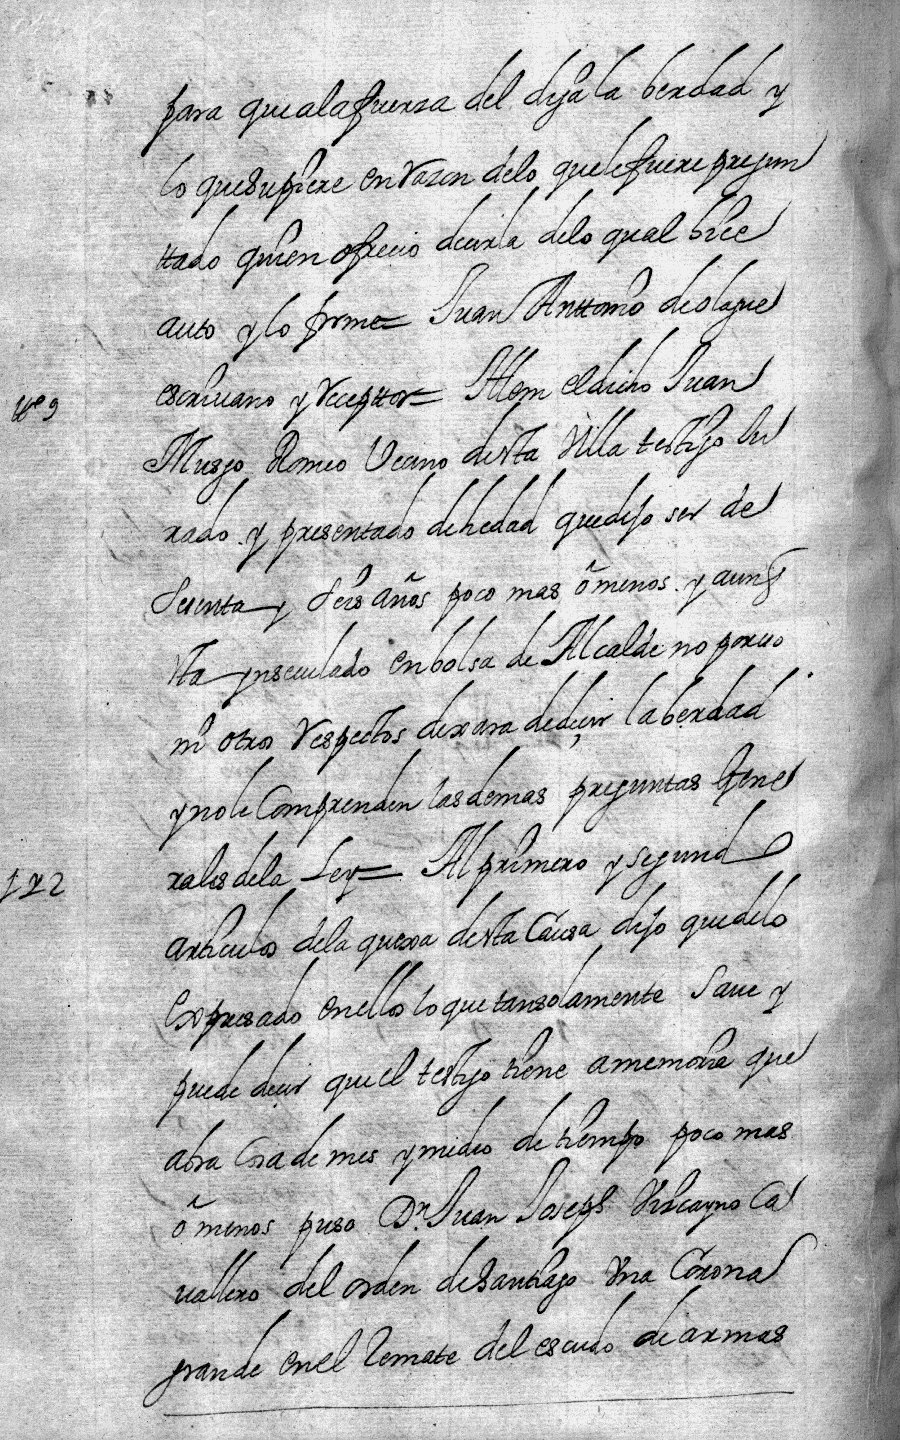 para que a la fuerza del diga la berdad y
lo que supiere en razon de lo que le fuere pregun
ttado quien ofrecio decirla de lo qual hice
auto y lo firme = Juan Anttonio de olague
escriuano y receptor = Ittem el dicho Juan
tt.º 9
Murgo Romeo Vecino desta Villa testigo Ju
rado y presentado de hedad que dijo ser de
Sesenta y Seis años poco mas o menos y aunq
sta ynseculado en bolsa de Alcalde no por eso
ni otros respectos dexara de deçir la berdad
y no le Comprenden las demas preguntas Gene
rales de la Ley = Al primero y segund
1 y 2
articulos de la quexa desta Causa dijo que de lo
Expresado en ellos lo que tan solamente Saue y
puede decir que el testigo tiene a memoria que
abra Cosa de mes y medio de tiempo poco mas
o menos puso Dn Juan Joseph Vizcayno Ca
uallero del orden de Santiago Vna Corona
grande en el Remate del escudo de armas